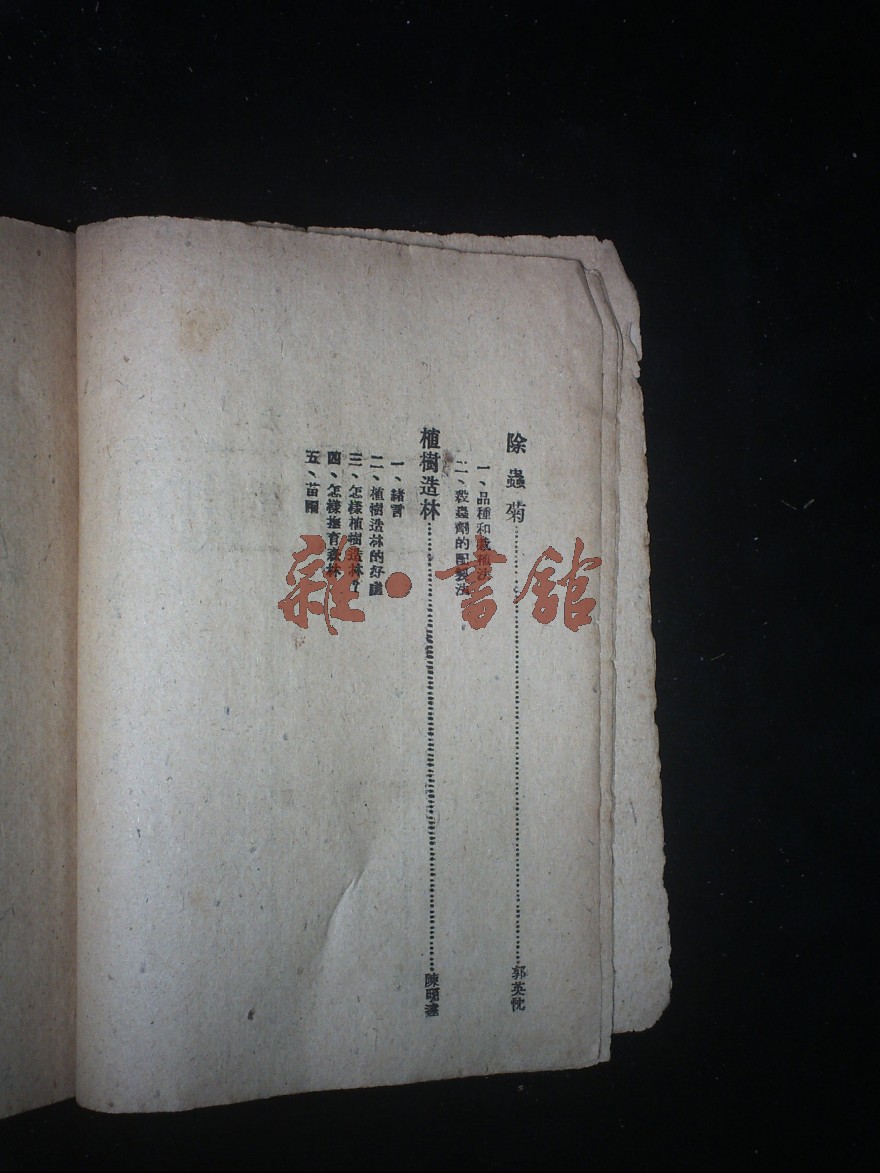 除蟲菊……郭英忱
一、品種和栽植法
二、殺蟲劑的配製法
植樹造林……陳明達
一、緒言
二、植樹造林的好處
三、怎樣植樹造林
四、怎樣撫育森林
五、苗圃
雜·書館